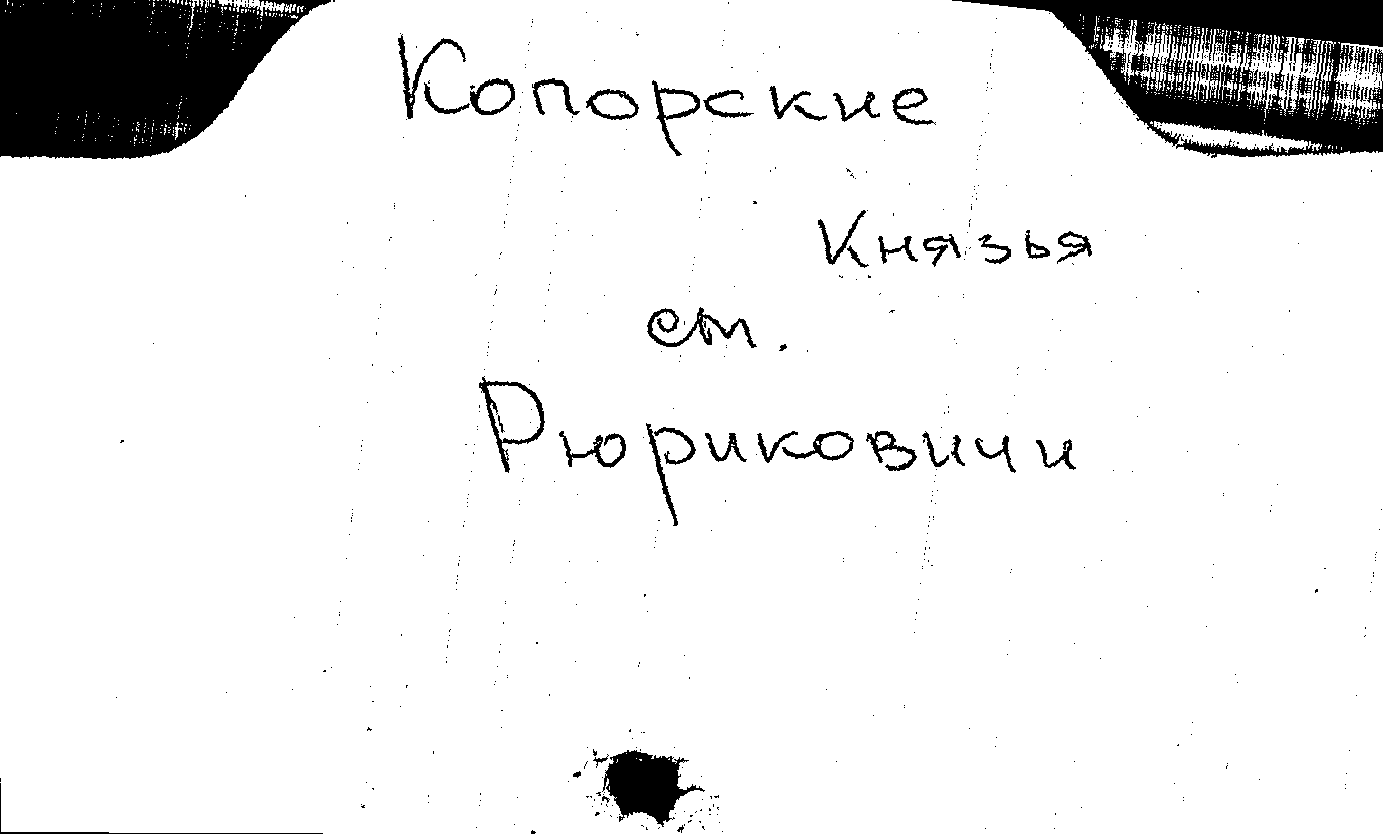 Копорские
Князья
см.
Рюриковичи